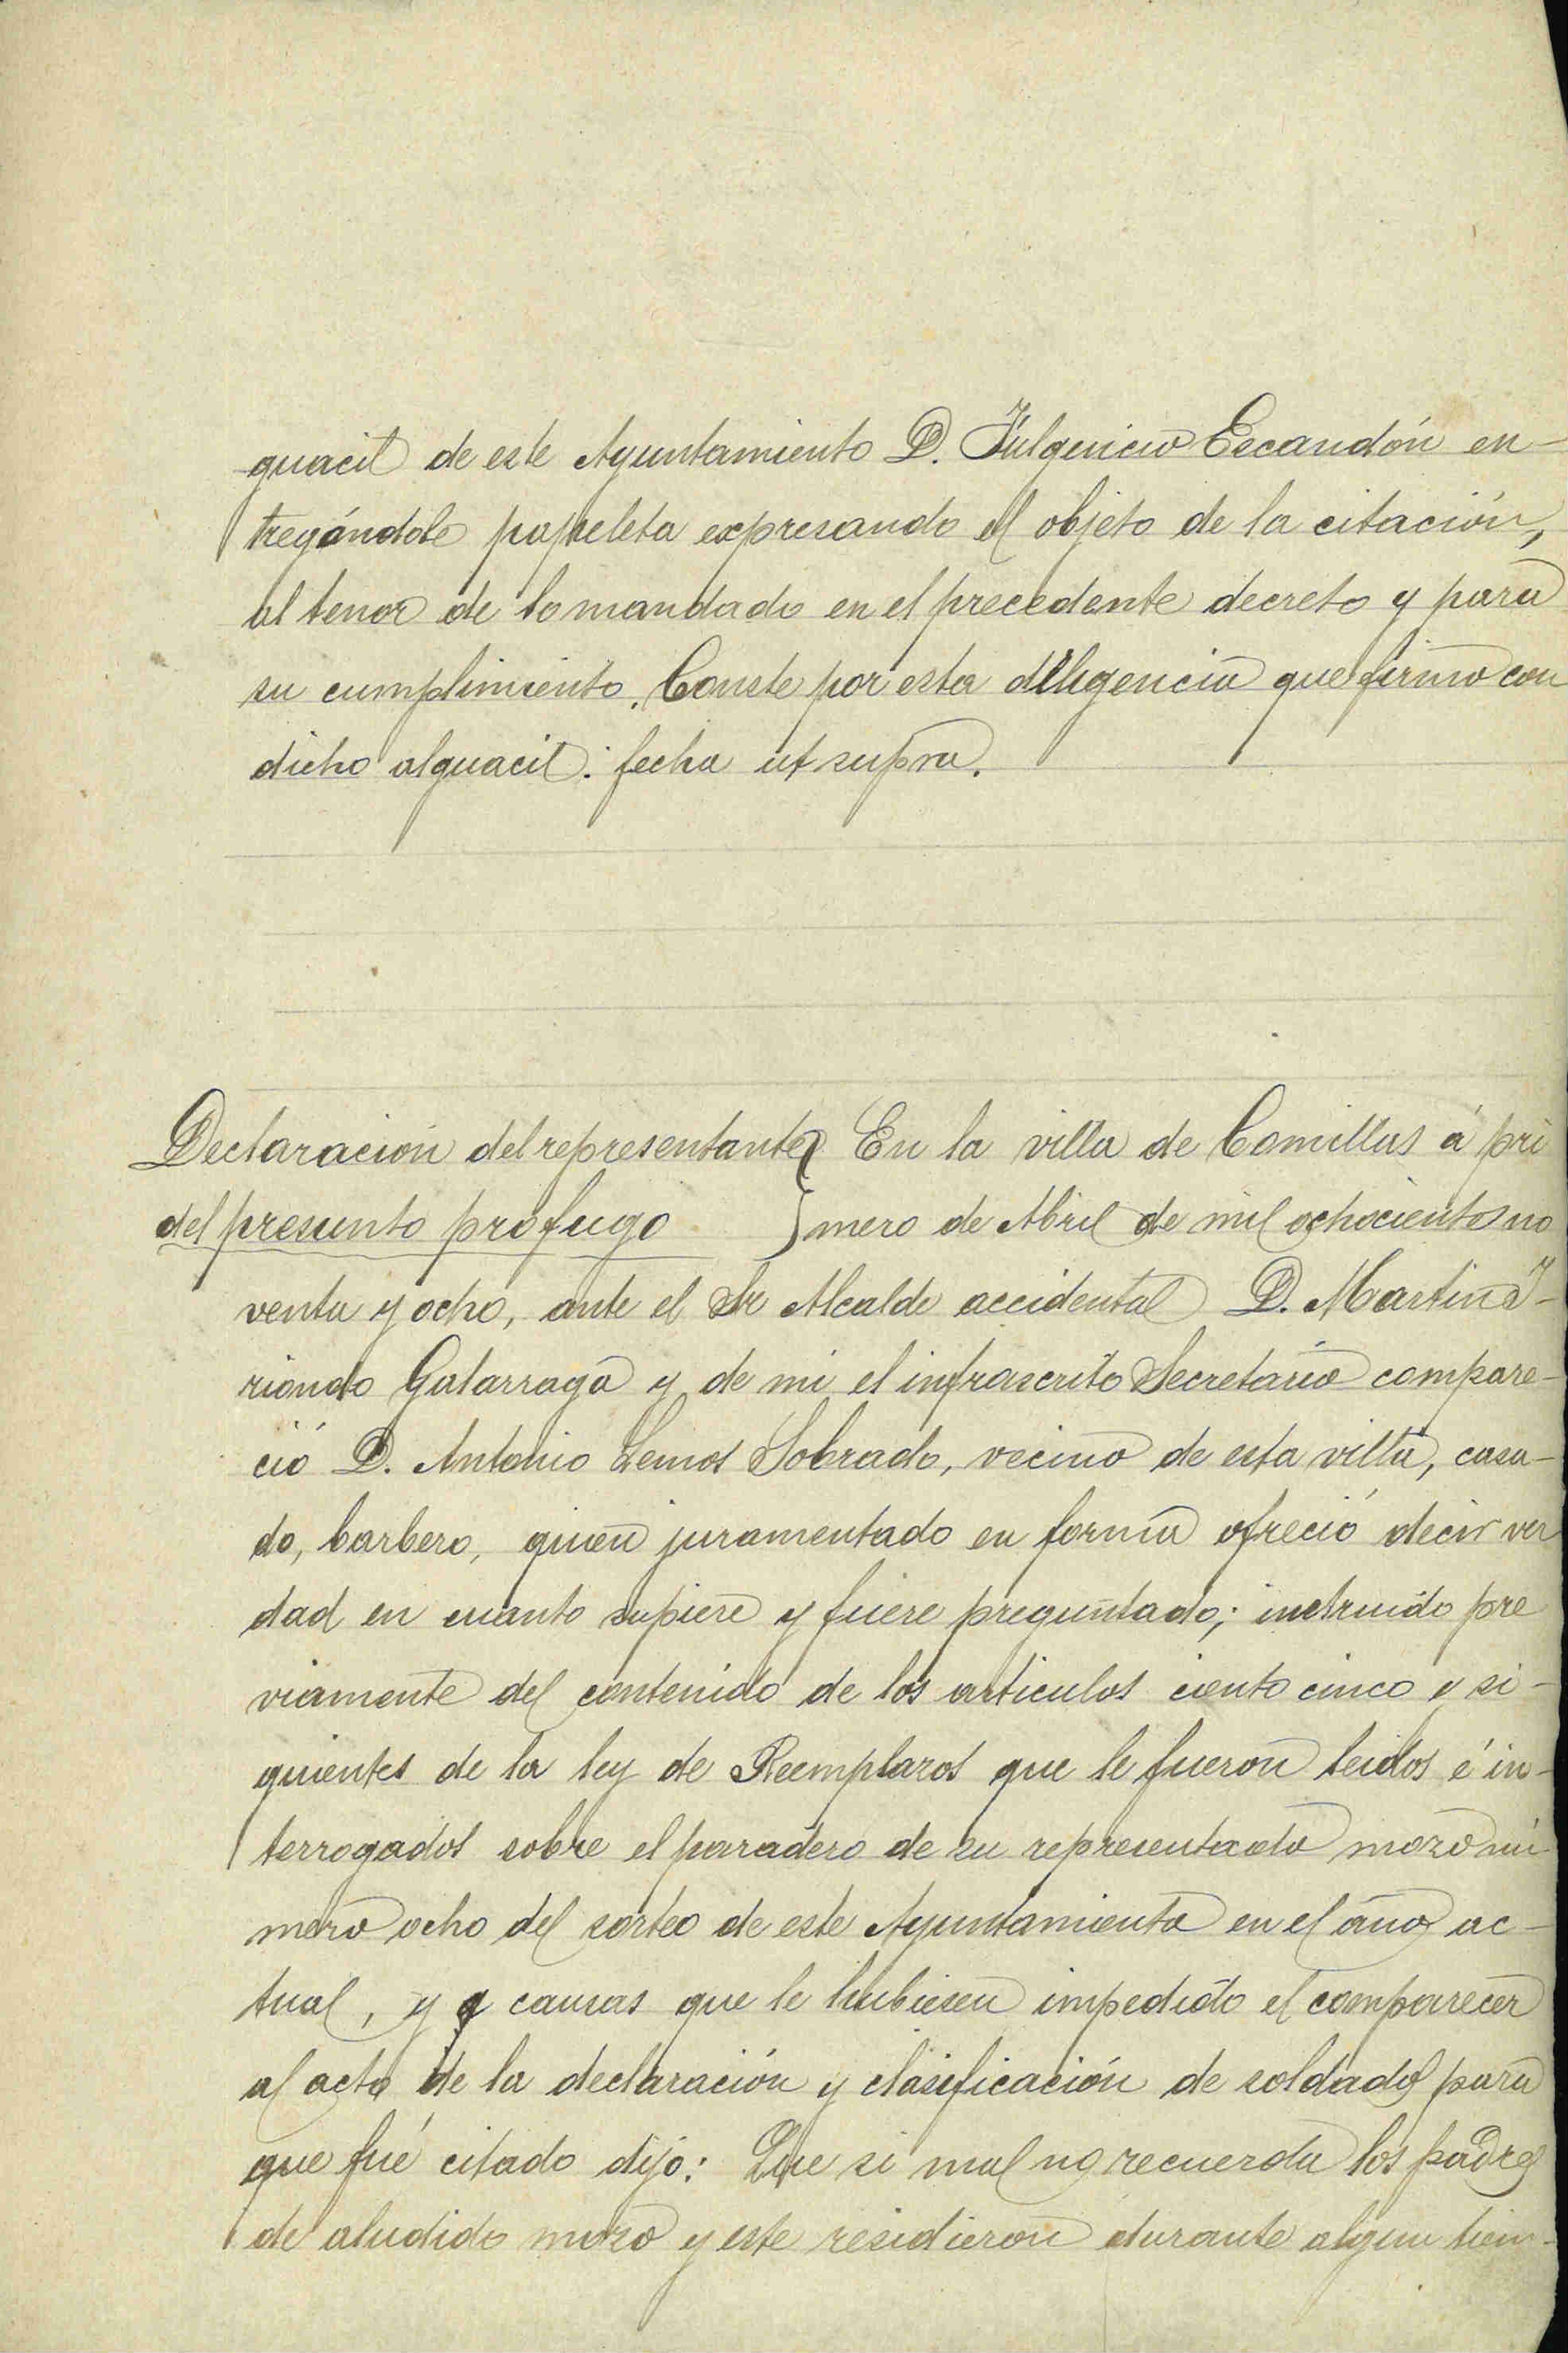 guacil de este Ayuntamiento D. Fulgencio Escandón en-
tregándole papeleta expresando el objeto de la citación,
al tenor de lo mandado en el precedente decreto y para
su cumplimiento. Conste por esta diligencia que firmo con
dicho alguacil: fecha ut supra.
Declaración del representante } En la villa de Comillas á pri
del presunto prófugo } mero de Abril de mil ochocientos no
venta y ocho, ante el Sr Alcalde accidental D. Martin I-
riondo Galarraga y de mi el infrascrito Secretario compare-
ció D. Antonio Lemos Sobrado, vecino de esta villa, casa-
do, barbero, quien juramentado en forma ofreció decir ver
dad en cuanto supiere y fuere preguntado; instruido pre
viamente del contenido de los articulos ciento cinco y si-
guientes de la ley de Reemplazos que le fueron leidos é in-
terrogados sobre el paradero de su representado mozo nú
mero ocho del sorteo de este Ayuntamiento en el año ac-
tual, y causas que le hubiesen impedido el comparecer
al acto de la declaración y clasificación de soldados para
que fué citado dijo: Que si mal no recuerda los padres
de aludido mozo y este residieron durante algun tiem-